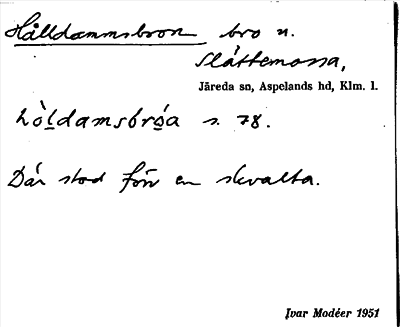 Hålldammsbron bro n.
Slåttemossa,
Järeda sn, Aspelands hd, Klm. l.
hòl̠damsbrǿa s. 78.
Där stod förr en skvalta.
Ivar Modéer 1951